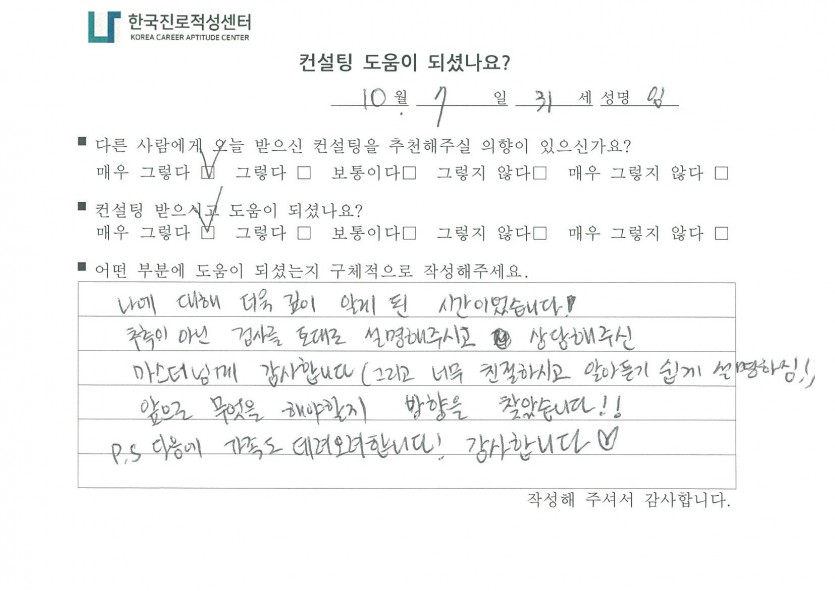 한국진로적성센터
KOREA CAREER APTITUDE CENTER
컨설팅 도움이 되셨나요?
10 월 7 일 31 세 성명 임
■ 다른 사람에게 오늘 받으신 컨설팅을 추천해주실 의향이 있으신가요?
매우 그렇다 ☑ 그렇다 □ 보통이다□ 그렇지 않다□ 매우 그렇지 않다 □
■ 컨설팅 받으시고 도움이 되셨나요?
매우 그렇다 ☑ 그렇다 □ 보통이다□ 그렇지 않다□ 매우 그렇지 않다 □
■ 어떤 부분에 도움이 되셨는지 구체적으로 작성해주세요.
나에 대해 더욱 깊이 알게 된 시간이었습니다!
추측이 아닌 검사를 토대로 설명해주시고 상담해주신
마스터님께 감사합니다 (그리고 너무 친절하시고 알아듣기 쉽게 설명하심!!)
앞으로 무엇을 해야할지 방향을 찾았습니다!!
P.S 다음에 가족도 데려오려합니다! 감사합니다 ♡
작성해 주셔서 감사합니다.